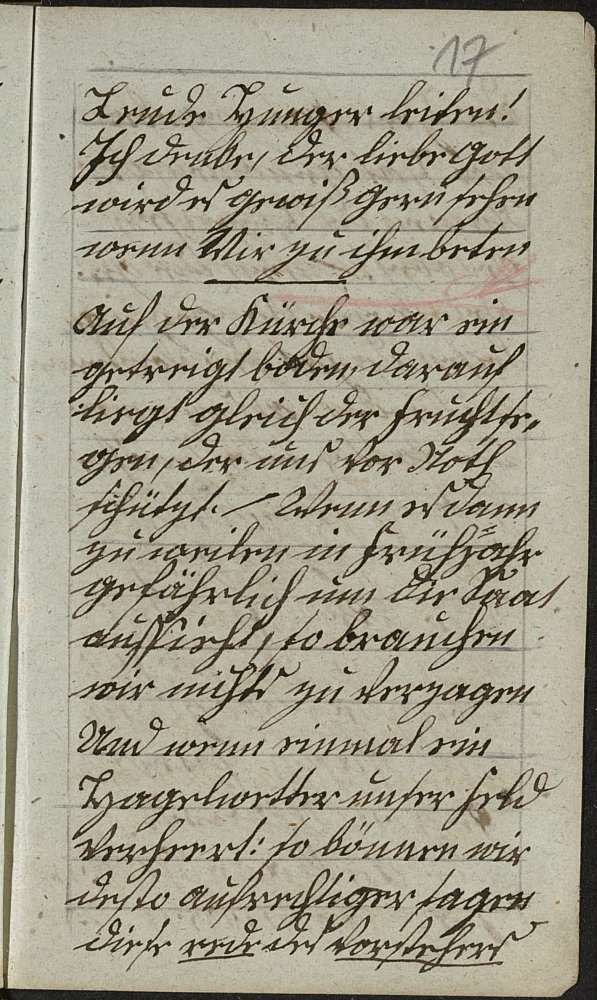 17
Leude Hunger leiden!
Ich denke, der liebe Gott
wird es gewiß gern sehen
wenn Wir zu ihm beten
Auf der Kürche war ein
getreigt boden, darauf
liegt gleich der Fruchtse-
gen, der uns vor Noth
schützt. – Wenn es dann
zu weilen in Frühjahr
gefährlich um die Saat
aussieht, so brauchen
wir nichts zu verzagen
Und wenn einmal ein
Hagelwetter unser Feld
verheert: so können wir
desto aufrechtiger sagen
diese rede des Vorstehers